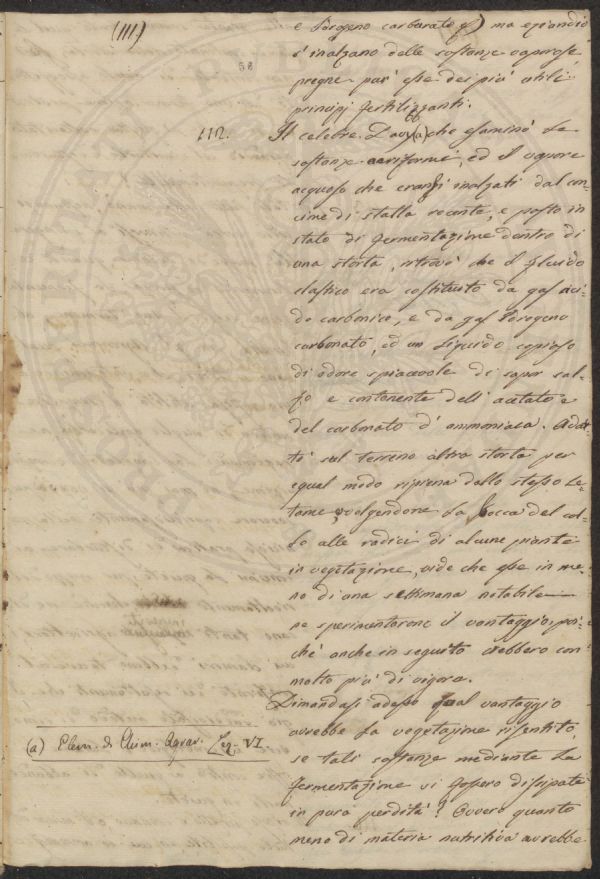 (111)
58
e l'idrogeno carburato ma eziandio
s'inalzano delle sostanze vaporose
pregne pur' esse dei più utili
principj fertilizzanti.
112. Il celebre Davy (a) che esaminò le
sostanze aeriformi, ed il vapore
acquoso che eransi inalzati dal con-
cime di stalla recente, e posto in
stato di fermentazione dentro di
una storta, ritrovò che il fluido
elastico era costituito da gas aci-
do carbonico, e da gas idrogeno
carbonato, ed un liquido copioso
di odore spiacevole di sapor sal-
so e contenente dell' acetato e
del carbonato d' ammoniaca. Adat-
tò sul terreno altra storta per
egual modo ripiena dello stesso le-
tame, volgendone la bocca del col-
lo alle radici di alcune piante
in vegetazione, vide che esse in me-
no di una settimana notabile
ne sperimentarono il vantaggio, poi-
chè anche in seguito crebbero con
molto più di vigore.
Dimandasi adesso qual vantaggio
avrebbe la vegetazione risentito,
se tali sostanze mediante la
fermentazione si fossero dissipate
in pura perdita? Ovvero quanto
meno di materia nutritiva avrebbe
(a) Elem. di Chim. Agrar. Lez. VI